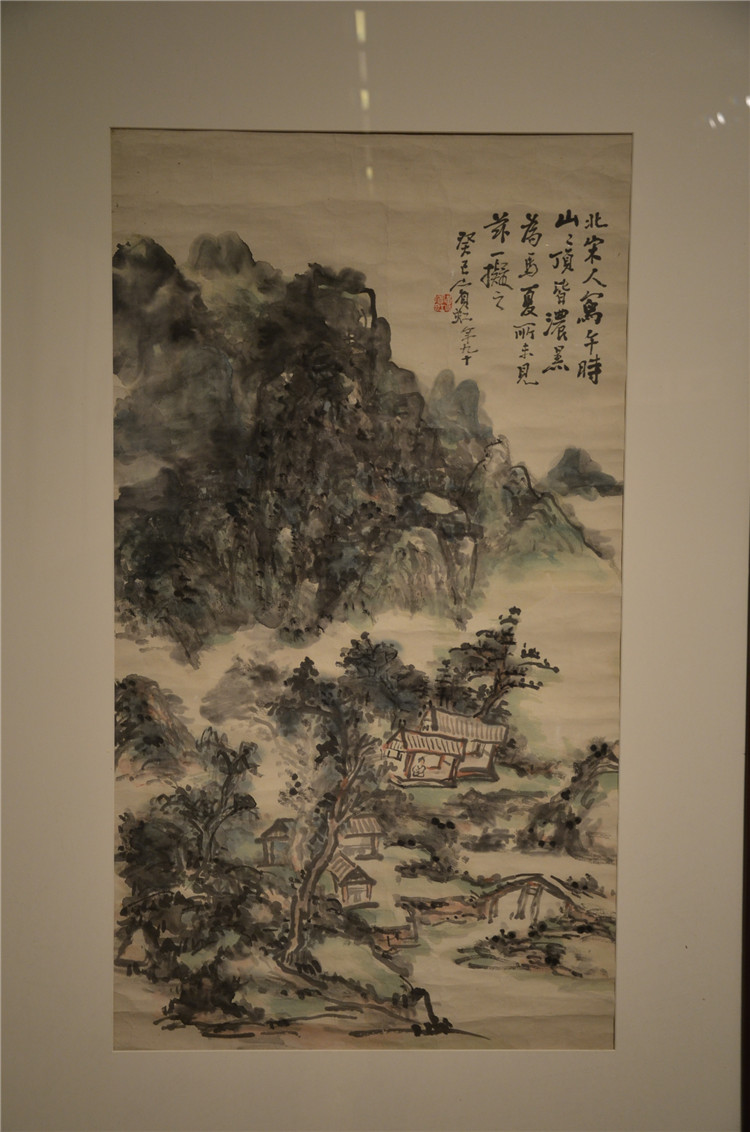 北宋人寫午時
山〻頂皆濃黑
為馬夏所未見
茲一擬之
癸巳賓虹年九十